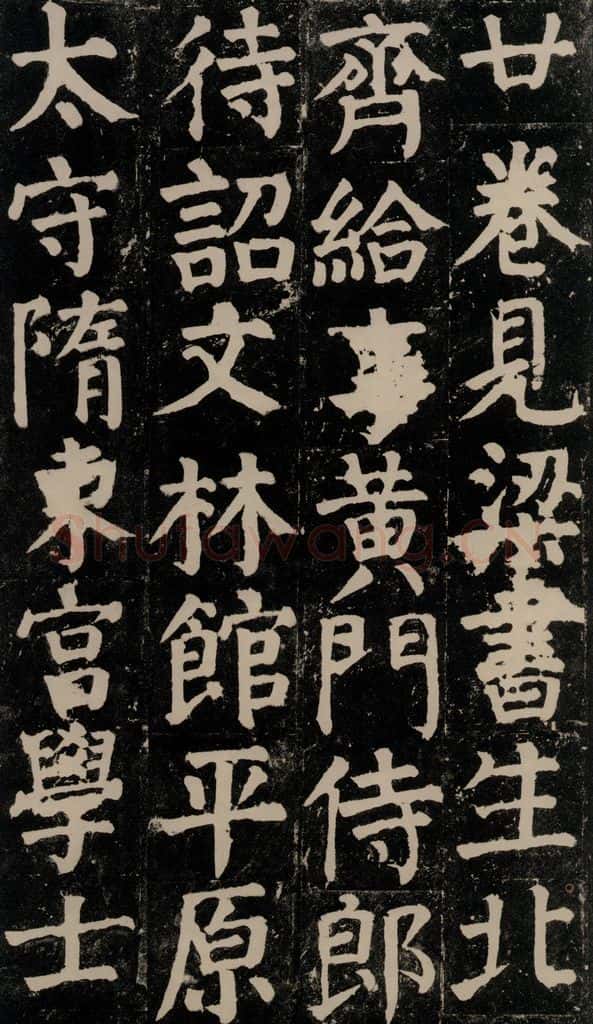 廿卷見梁書生北
齊給事黃門侍郎
待詔文林館平原
太守隋東宮學士
Shufawang.CN